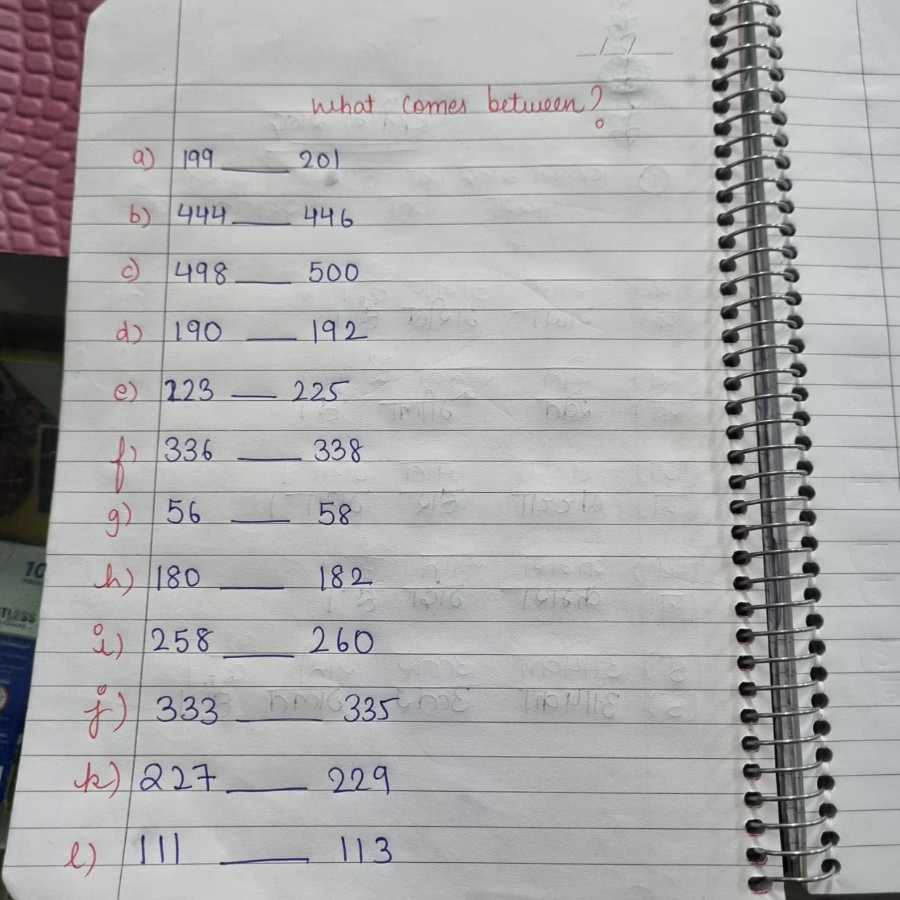 What comes between?
a) 199 ____ 201
b) 444 ____ 446
c) 498 ____ 500
d) 190 ____ 192
e) 223 ____ 225
f) 336 ____ 338
g) 56 ____ 58
h) 180 ____ 182
i) 258 ____ 260
j) 333 ____ 335
k) 227 ____ 229
l) 111 ____ 113
10